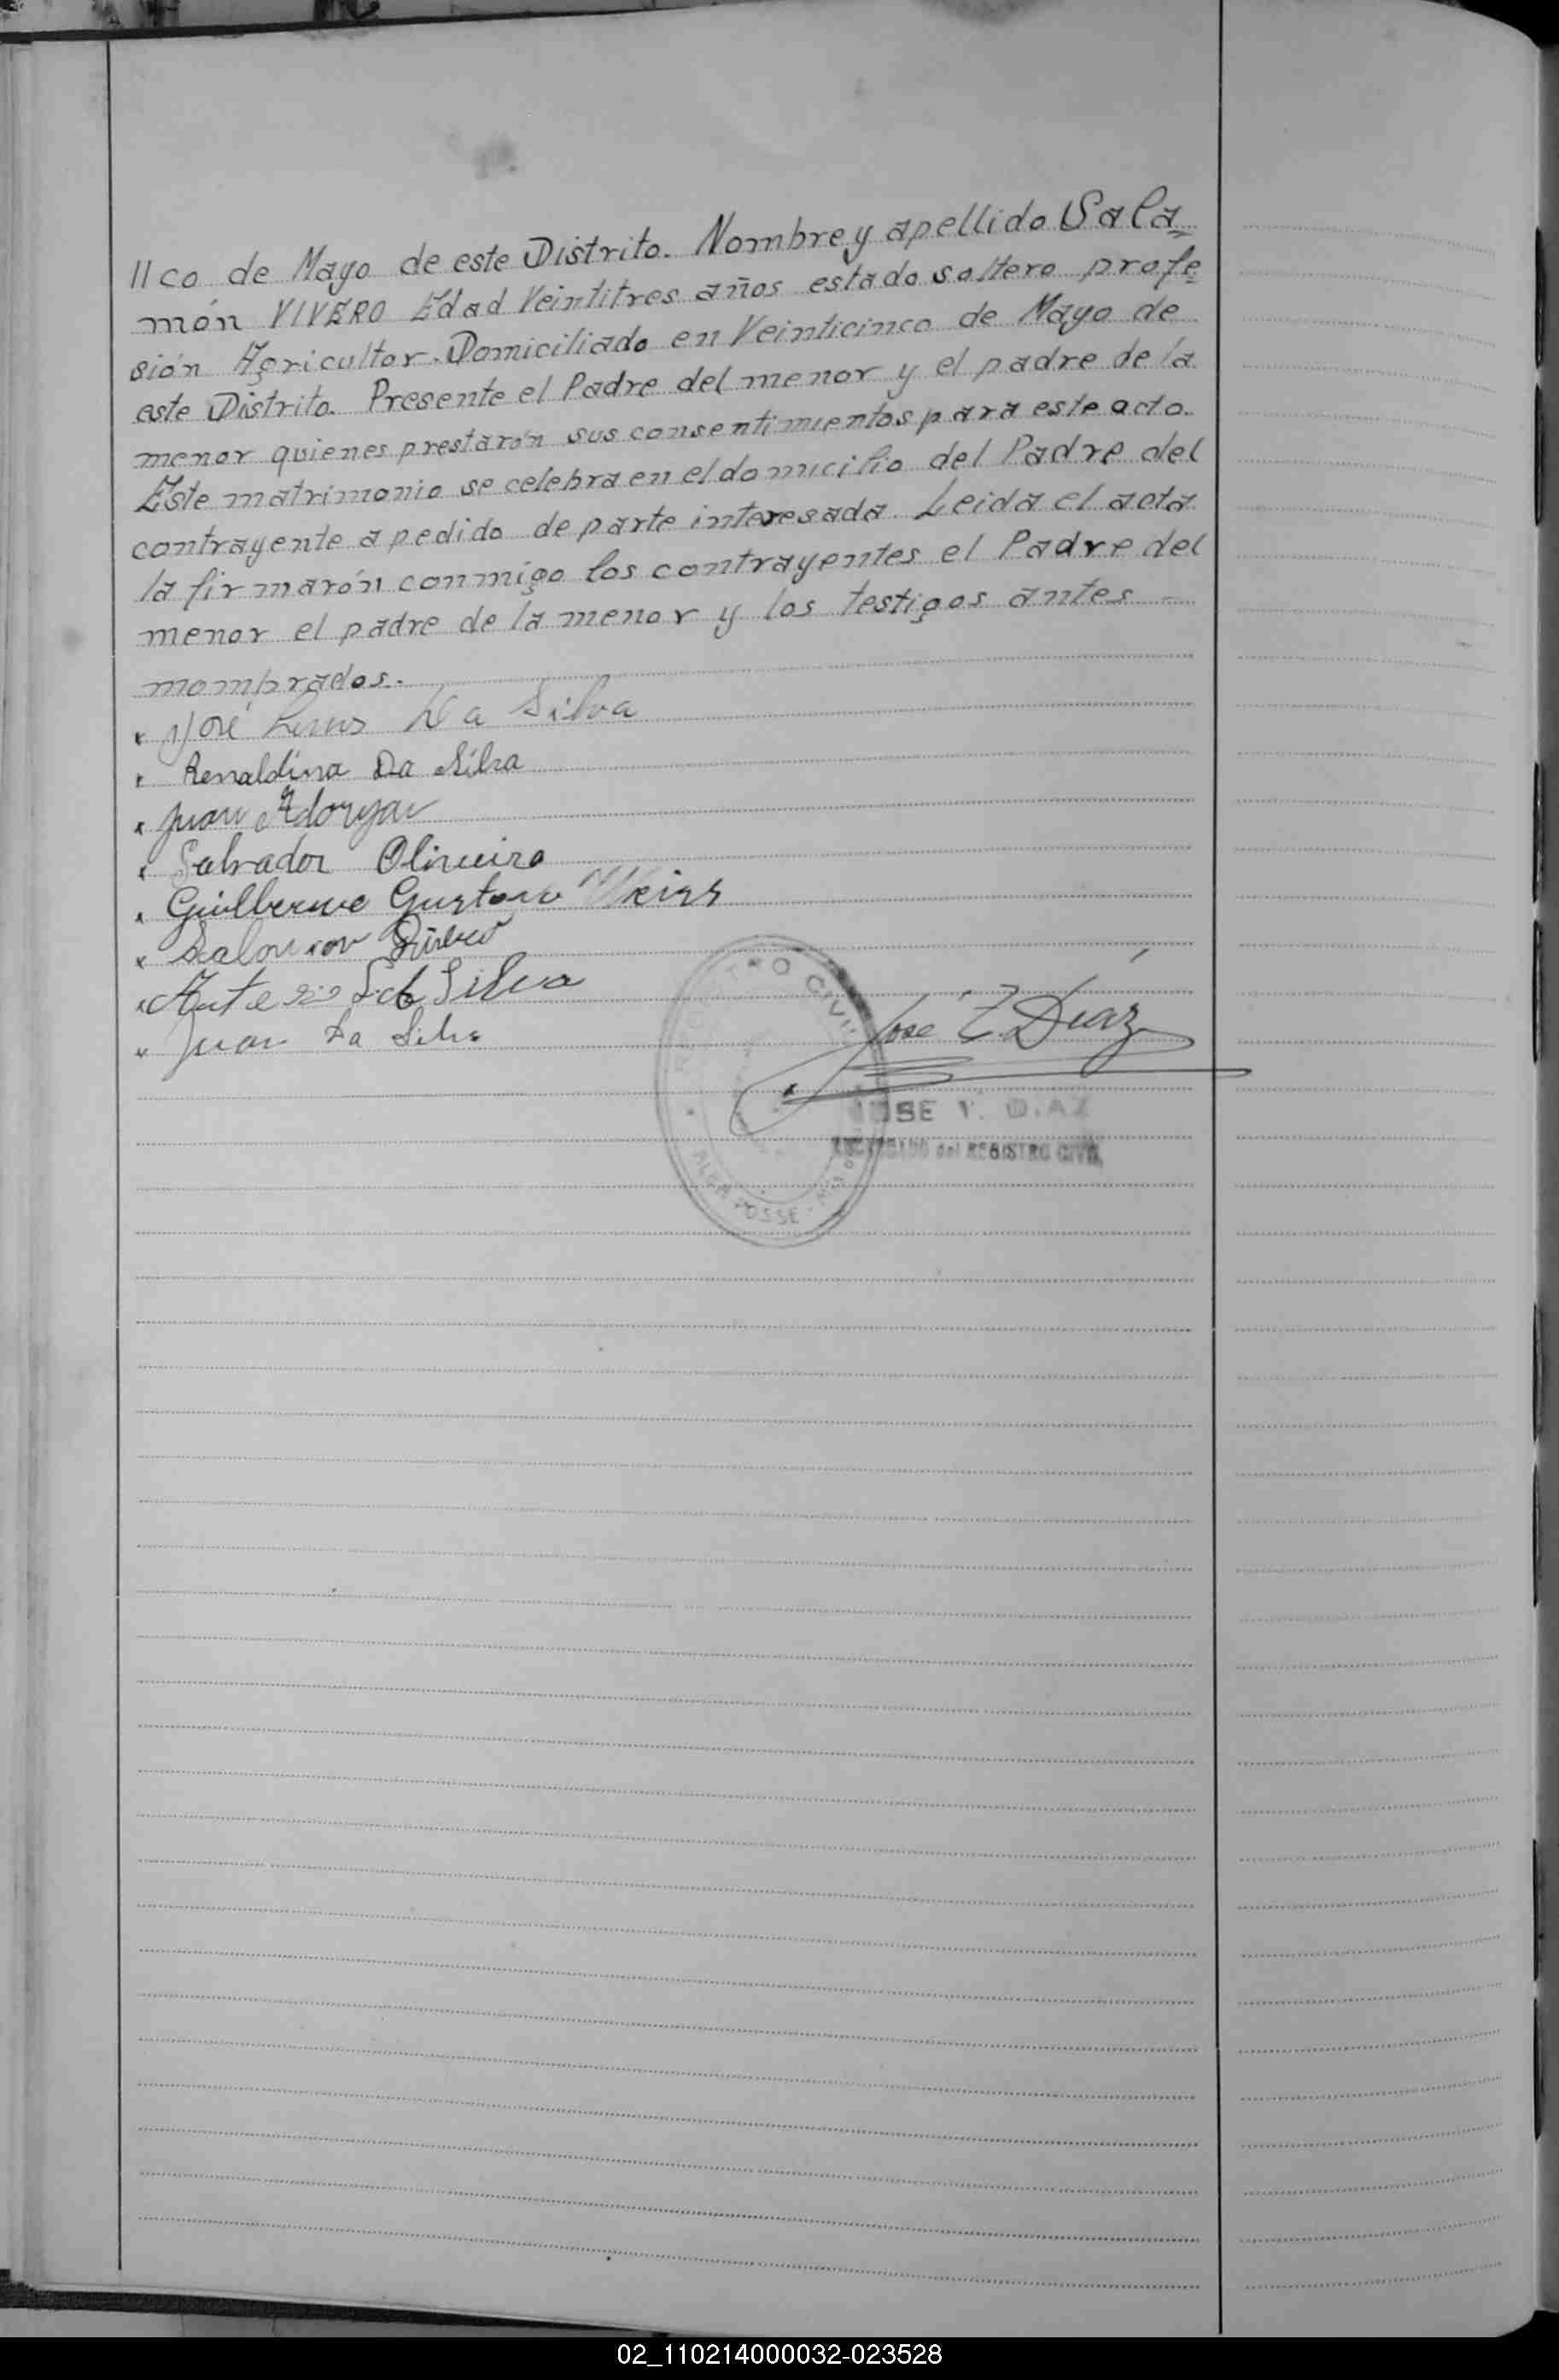 IIco de Mayo de este Distrito. Nombre y apellido Sala
món VIVERO Edad Veintitres años estado soltero profe
sión Agricultor. Domiciliado en Veinticinco de Mayo de
este Distrito. Presente el Padre del menor y el padre de la
menor quienes prestarón sus consentimientos para este acto.
Este matrimonio se celebra en el domicilio del Padre del
contrayente a pedido de parte interesada. Leida el acta
la firmarón conmigo los contrayentes el Padre del
menor el padre de la menor y los testigos antes
mombrados.
José Da Silva
Renaldina Da Silva
Juan
Salvador Oliveira
Guilherme Gustavo Weiss
Silva
Juan Da Silva
José Díaz
CIVIL
JOSE DIAZ
del REGISTRO CIVIL
ALBA POSSE
02_110214000032-023528